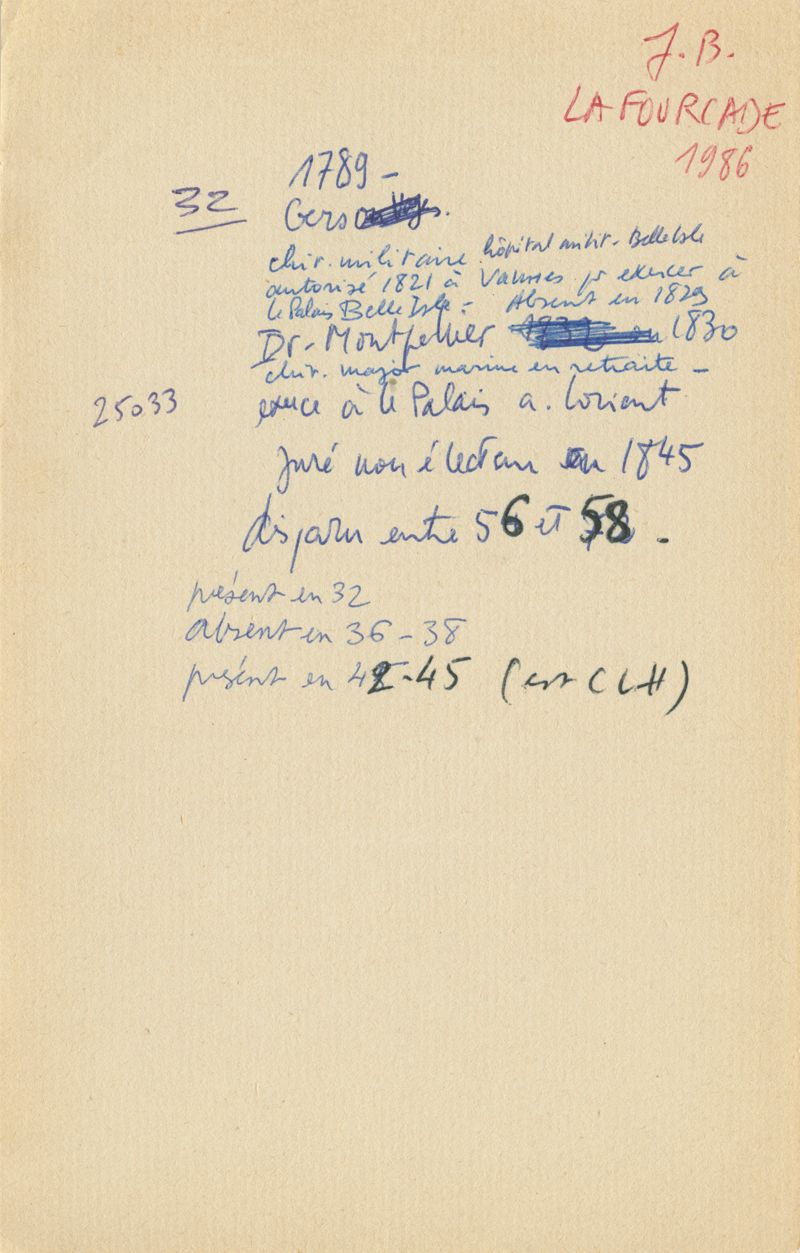 J. B.
LAFOURCADE
1986
1789 -
32
Gers
chir. militaire hôpital milit. Belle Isle
autorisé 1821 à Vannes pr exercer à
le Palais Belle Isle - Absent en 1829
Dr. Montpellier 1830
chir. major marine en retraite -
25033
exerce à le Palais a. Lorient
juré non électeur en 1845
disparu entre 56 et 58 .
présent en 32
absent en 36 - 38
présent en 42-45 (est CLH)